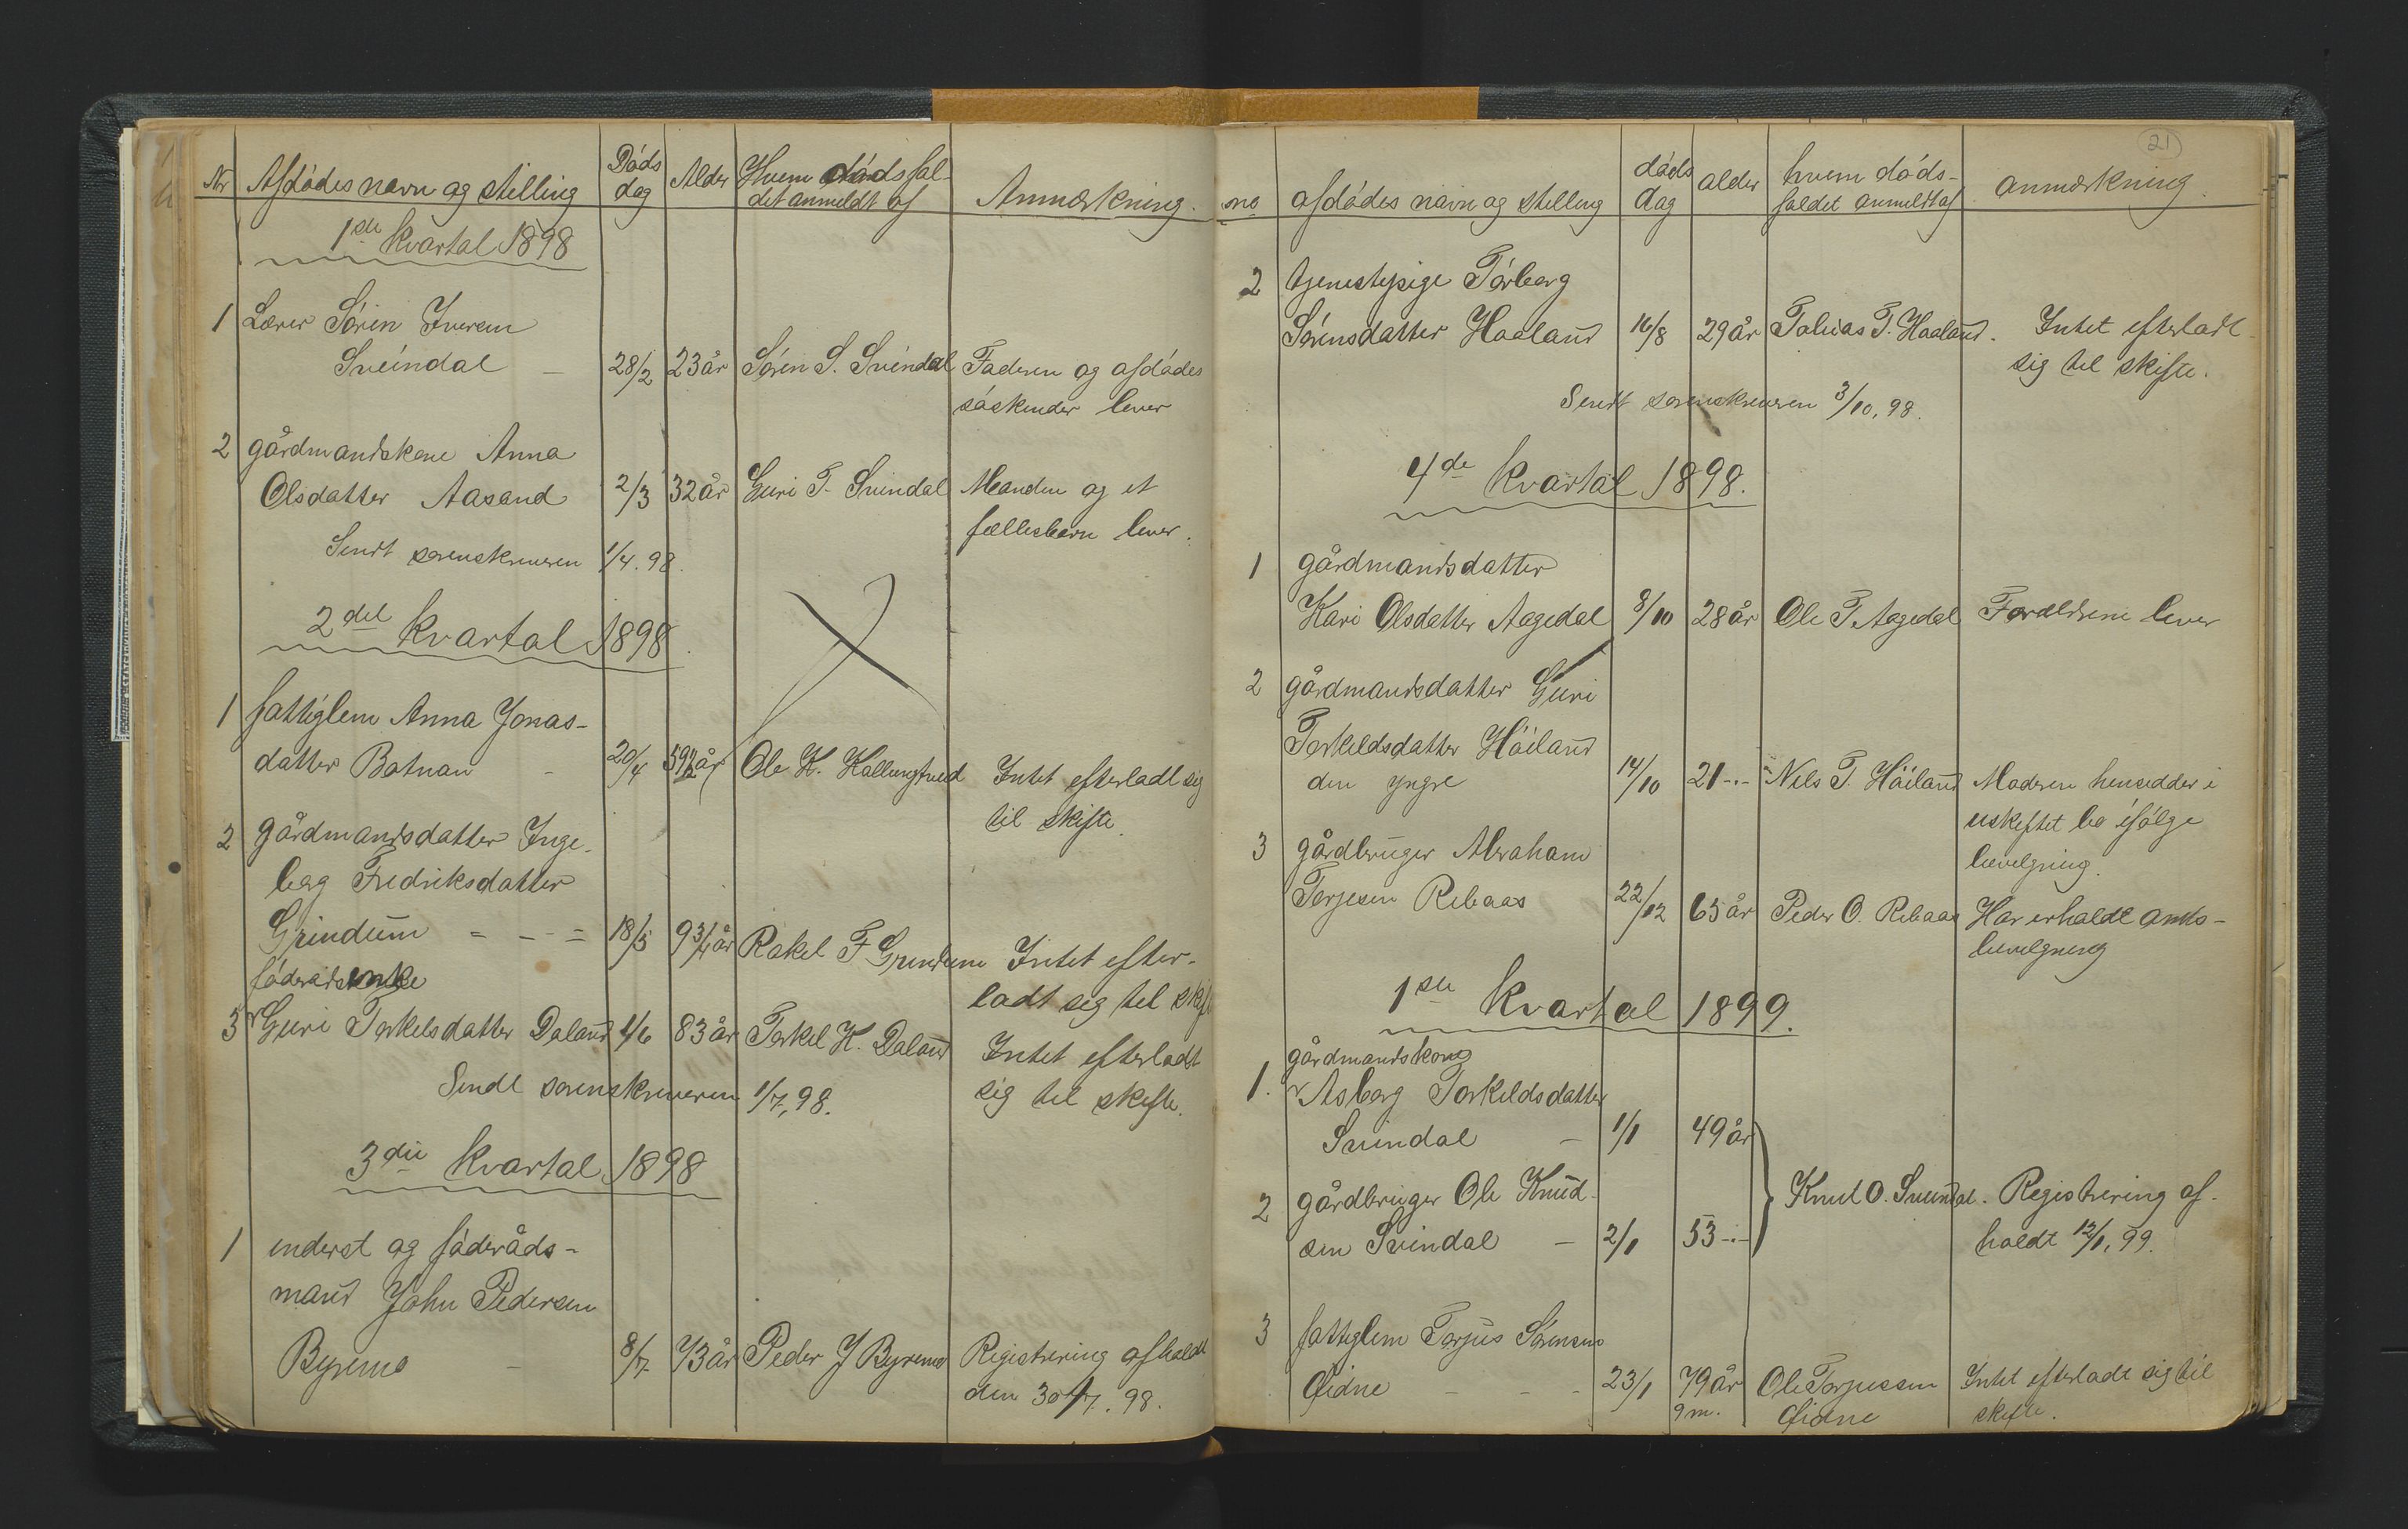 Nr Afdödes navn og stilling Döds dag Alder Hvem dödsfal- det anmeldt af Anmærkning.
1ste kvartal 1898
1 Lærer Sören Iversen
Svindal – 28/2 23 år Sören S. Svindal Faderen og afdödes
söskender lever
2 gårdmandskone Anna
Olsdatter Aasand 2/3 32 år Guri T. Svindal Manden og et
fællesbarn lever.
Sendt sorenskriveren 1/4. 98.
2det kvartal 1898.
1 fattiglem Anna Jonas-
datter Botnan - 20/4 59 1/2 år Ole K. Kallungtved Intet efterladt sig
til skifte.
2 gårdmandsdatter Inge-
borg Fredriksdatter
Grindum = - - = 18/5 9 3/4 år Rakel F Grindum Intet efter-
ladt sig til skift
föderådsenke
3 Guri Torkelsdatter Daland 1/6 83 år Torkel K. Daland Intet efterladt
sig til skifte.
Sendt sorenskriveren 1/7, 98.
3die kvartal 1898
1 inderst og föderåds-
mand John Pedersen
Byremo – 8/7 73 år Peder J Byremo Registrering afholdt
den 30/7. 98.
21
no afdödes navn og stilling döds dag alder hvem döds- faldet anmeldt af anmærkning.
2 tjenestepige Törborg
Sörensdatter Haaland 16/8 29 år Tobias T. Haaland. Intet efterladt
sig til skifte.
Sendt sorenskriveren 3/10, 98.
4de kvartal 1898.
1 gårdmandsdatter
Kari Olsdatter Aagedal 8/10 28 år Ole T. Aagedal Forældrene lever
2 gårdmandsdatter Guri
Torkildsdatter Höiland
den yngre 14/10 21 -.- Nils T. Höiland Moderen hensidder i
uskiftet bo ifölge
bevilgning.
3 gårdbruger Abraham
Terjesen Ribaas 22/12 65 år Peder O. Ribaas Har erholdt amts-
bevilgning
1ste kvartal 1899.
gårdmandskone
1. Asborg Torkildsdatter
Svindal – 1/1 49 år
2 gårdbruger Ole Knud-
sen Svindal – 2/1 53 -.- Knut O. Svindal. Registrering af-
holdt 12/1, 99.
3 fattiglem Torjus Sörensen
Öidne - - - 23/1 79 år 9 m. Ole Torjussen Öidne Intet efterladt sig til
skifte.